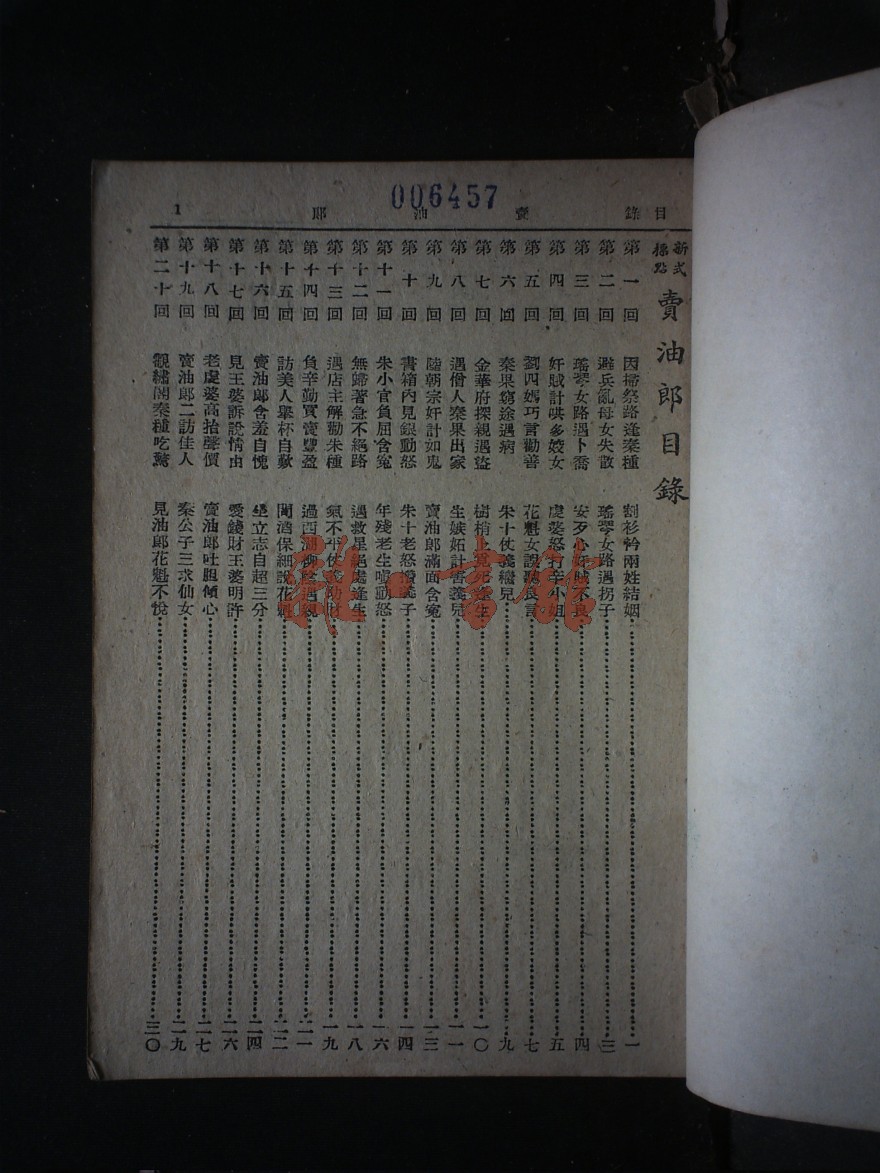 006457
目錄 賣油郎 1
新式標點 賣油郎目錄
第一回 因掃祭路逢秦種 割衫衿兩姓結姻 一
第二回 避兵亂母女失散 瑤琴女路遇拐子 三
第三回 瑤琴女路遇卜喬 安歹心奸賊不良 四
第四回 奸賊計哄多姣女 虔婆怒打辛小姐 五
第五回 劉四媽巧言勸善 花魁女誤聽良言 七
第六回 秦果窮途遇病 朱十仗義繼兒 九
第七回 金華府探親遇盜 樹梢上覓死逢生 一〇
第八回 遇僧人秦果出家 生嫉妬計害義兒 一一
第九回 陸朝宗奸計如鬼 賣油郎滿面含寃 一三
第十回 書箱內見銀動怒 朱十老怒攆義子 一四
第十一回 朱小官負屈含寃 年殘老生嗔動怒 一六
第十二回 無歸著急不絕路 遇救星絕處逢生 一八
第十三回 遇店主解勸朱種 氣不平仗義助財 一九
第十四回 負辛勤買賣豐盈 過西湖 遇 二一
第十五回 訪美人舉杯自歎 聞酒保細說花魁 二二
第十六回 賣油郎含羞自愧 立志自超三分 二四
第十七回 見王婆訴說情由 愛錢財王婆明許 二六
第十八回 老虔婆高抬聲價 賣油郎吐胆傾心 二七
第十九回 賣油郎二訪佳人 秦公子三求仙女 二九
第二十回 觀繡閣秦種吃驚 見油郎花魁不悅 三〇
雜書館